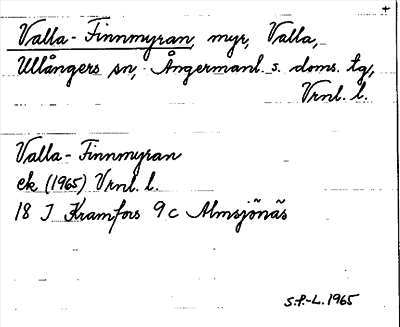 +
Valla-Finnmyran, myr, Valla,
Ullångers sn, Ångermanl. s. doms. tg,
Vrnl. l.
Valla-Finnmyran
ek (1965) Vrnl. l.
18 J Kramfors 9 c Almsjönäs
S.P.-L. 1965